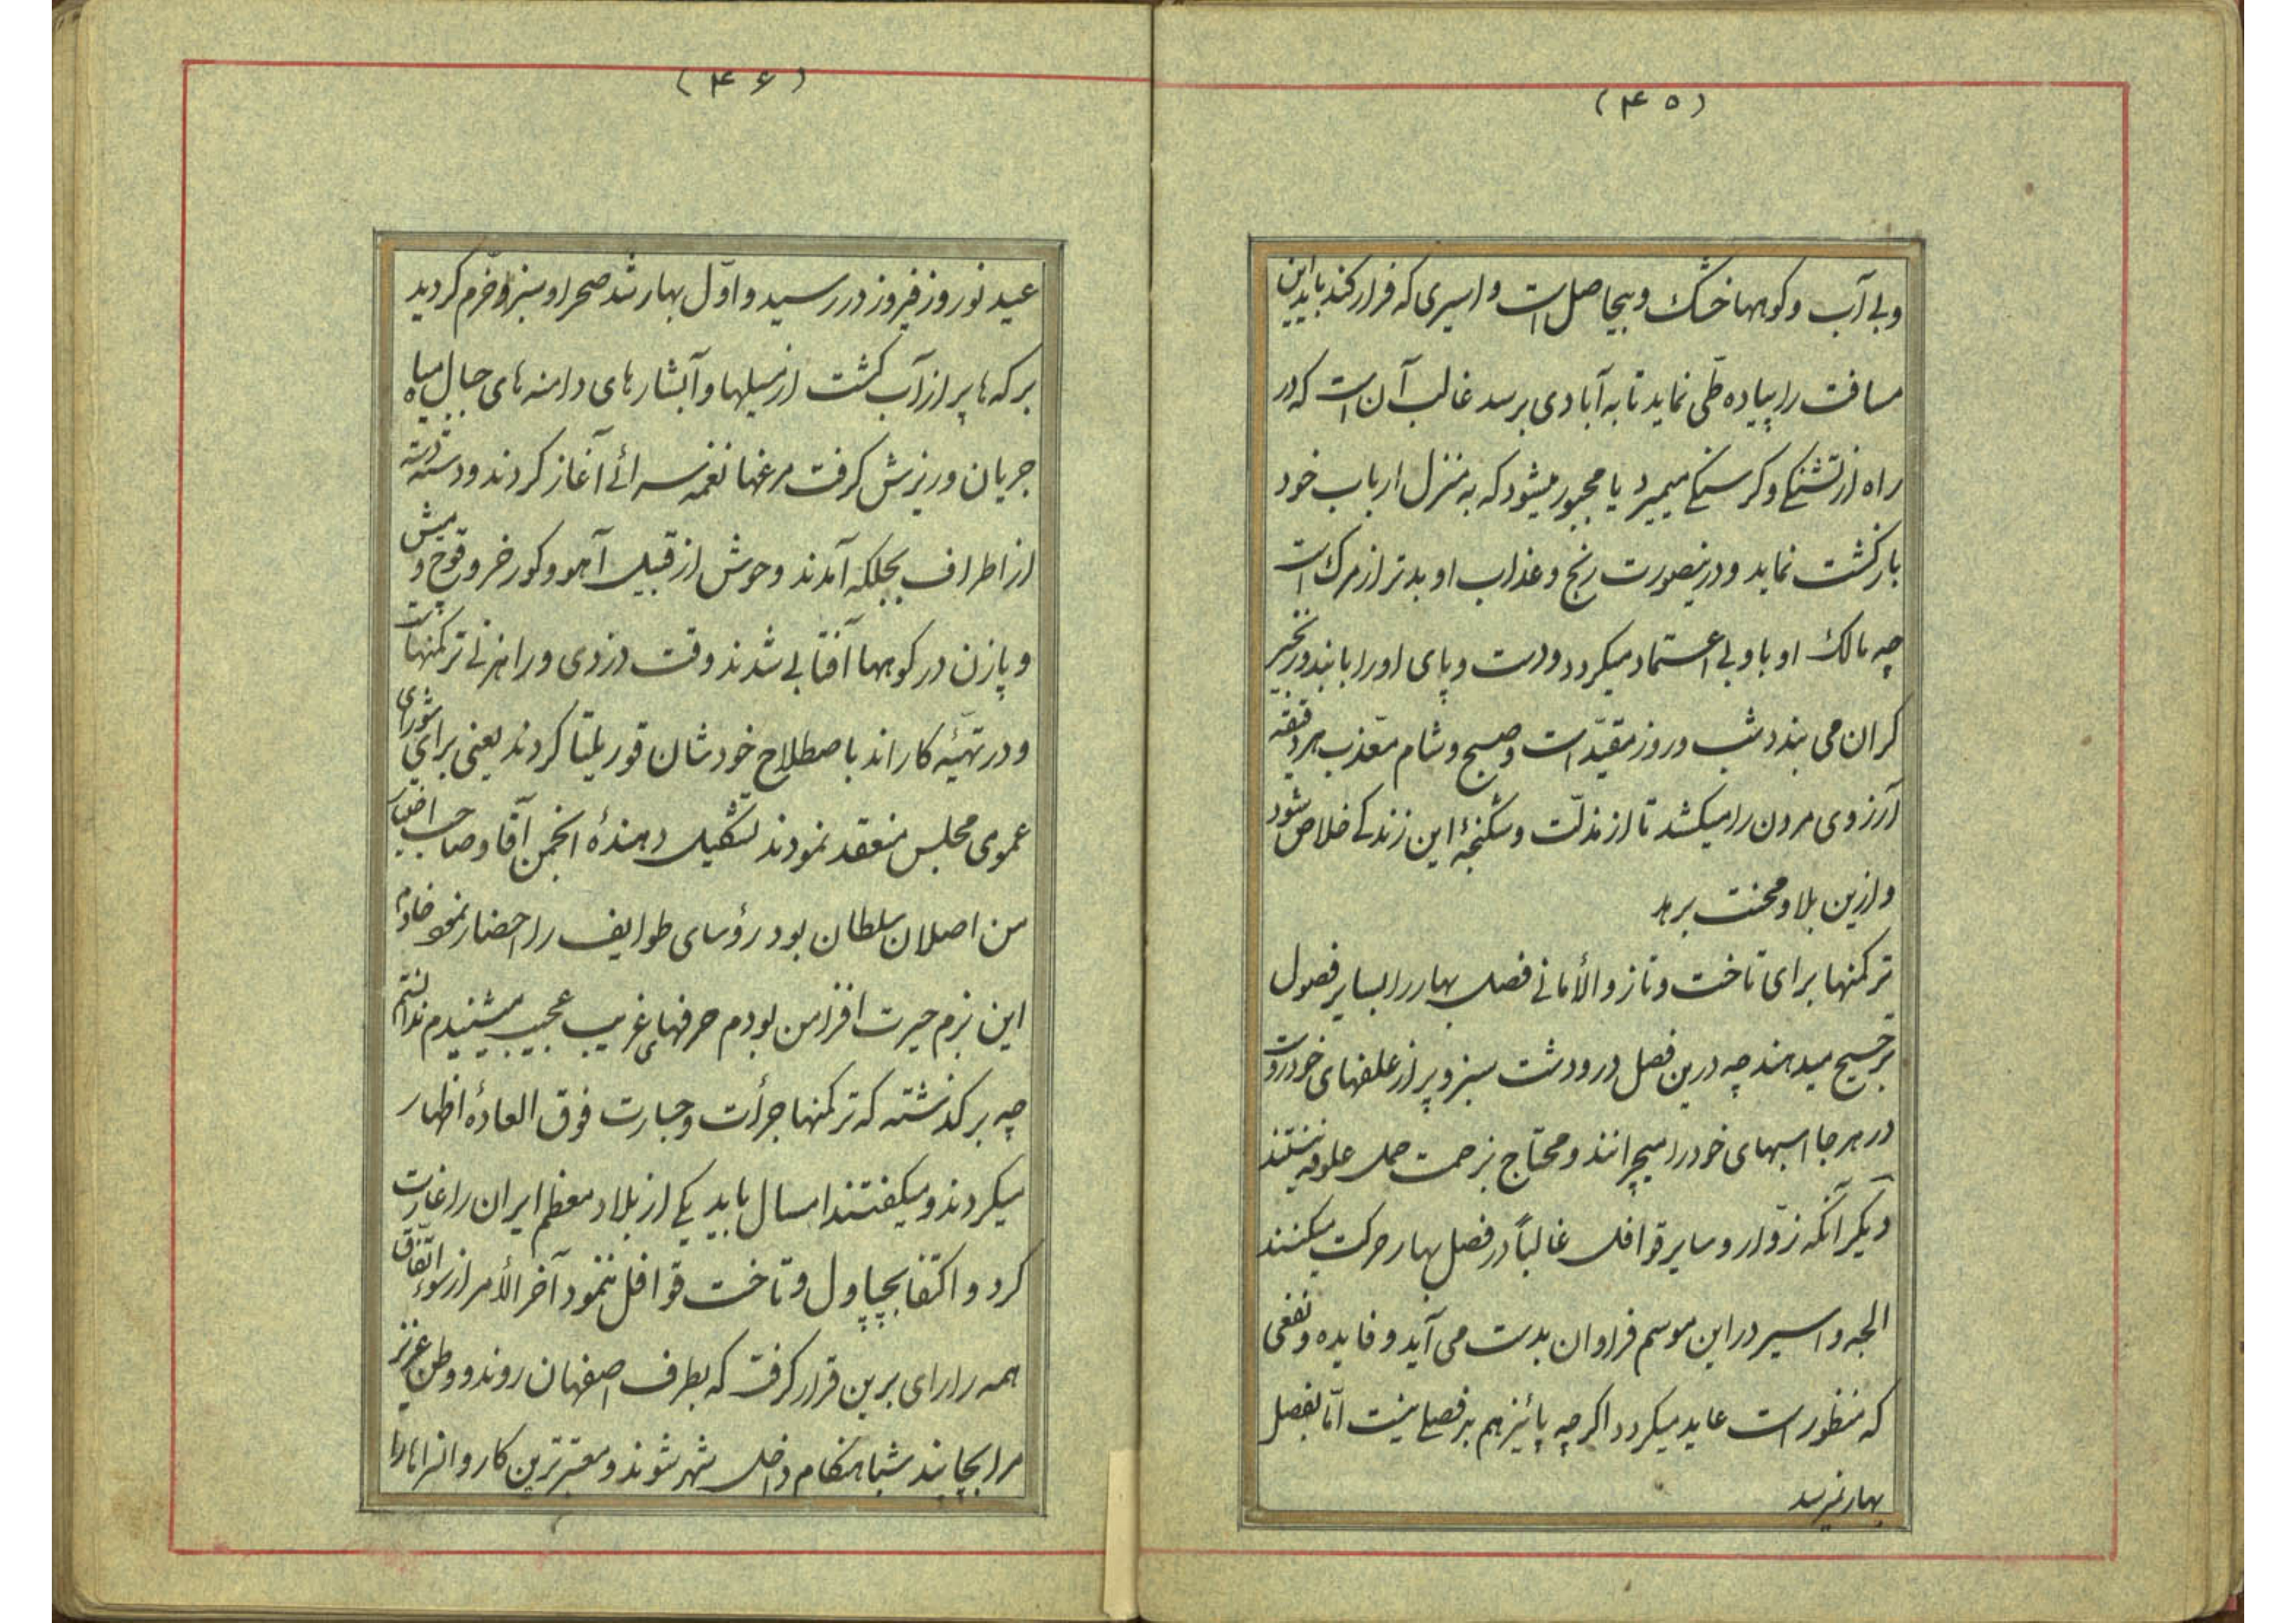 (۴۵)
و بی آب و کوهها خشک و بیحاصل است و اسیری که فرار کند باید این
مسافت را پیاده طّی نماید تا به آبادی برسد غالب آن است که در
راه از تشنکی و کرسنکی میمیرد یا مجبور میشود که به منزل ارباب خود
بازکشت نماید و درینصورت رنج و عذاب او بدتر از مرک است
چه مالک او باو بی اعتماد میکردد و دست و پای او را با بند و زنجیر
کران می بندد شب و روز مقیّد است و صبح و شام معّذب هر دقیقه
آرزوی مردن را میکشد تا از مذلّت و شکنجهٔ این زندکی خلاص شود
و ازین بلا و محنت برهد
ترکمنها برای تاخت و تاز و الأمانی فصل بهار را بسایر فصول
ترجیح میدهند چه درین فصل در و دشت سبز و پر از علفهای خودروست
در هر جا اسبهای خود را میچرانند و محتاج بزحمت حمل علوفه نیستند
دیکر آنکه زوّار و سایر قوافل غالباً در فصل بهار حرکت میکنند
الجه و اسیر در این موسم فراوان بدست می آید و فایده و نفعی
که منظور است عاید میکردد اکر چه پائیز هم بد فصلی نیست امّا بفصل
بهار نمیرسد
(۴۶)
عید نوروز فیروز در رسید و اوّل بهار شد صحرا و سبز و خّرم کردید
برکه ها پر از آب کشت از سیلها و آبشارهای دامنه های جبال میاه
جریان و ریزش کرفت مرغها نغمه سرائی آغاز کردند و دسته دسته
از اطراف بجلکه آمدند وحوش از قبیل آهو و کورخر و قوچ و میش
و پازن در کوهها آفتابی شدند وقت دزدی و راهزنی ترکمنهاست
و در تهیّه کار اند باصطلاح خودشان قوریلتا کردند یعنی برای شورای
عمومی مجلس منعقد نمودند تشکیل دهندهٔ انجمن آقا و صاحب اختیار
من اصلان سلطان بود رؤسای طوایف را احضار نمود خادم
این بزم حیرت افزا من بودم حرفهای غریب عجیب میشنیدم ندانستم
چه بر کذشته که ترکمنها جرأت و جسارت فوق العادهٔ اظهار
میکردند و میکفتند امسال باید یکی از بلاد معظم ایران را غارت
کرد و اکتفا بچپاول و تاخت قوافل ننمود آخر الأمر از سوء اتّفاق
همه را رای برین قرار کرفت که بطرف اصفهان روند و وطن عزیز
مرا بچاپند شباهنکام داخل شهر شوند و معتبرترین کاروانسراها را